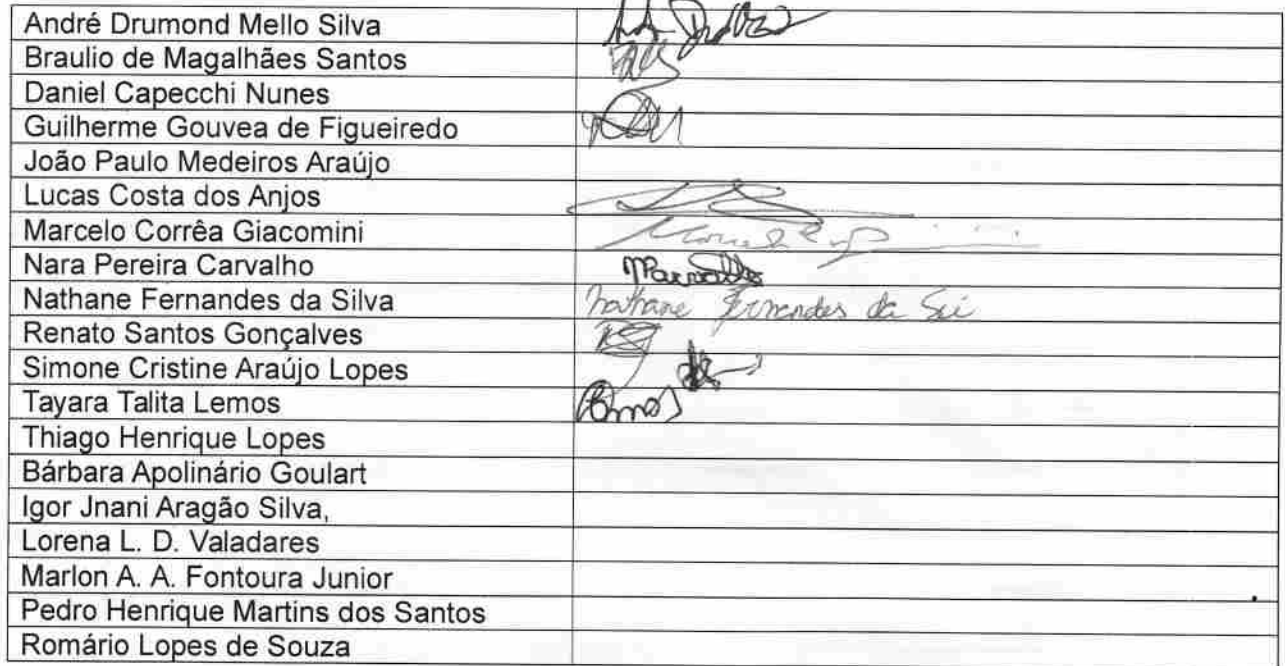 André Drumond Mello Silva
Braulio de Magalhães Santos
Daniel Capecchi Nunes
Guilherme Gouvea de Figueiredo
João Paulo Medeiros Araújo
Lucas Costa dos Anjos
Marcelo Corrêa Giacomini
Nara Pereira Carvalho
Nathane Fernandes da Silva Nathane Fernandes da
Renato Santos Gonçalves
Simone Cristine Araújo Lopes
Tayara Talita Lemos
Thiago Henrique Lopes
Bárbara Apolinário Goulart
Igor Jnani Aragão Silva,
Lorena L. D. Valadares
Marlon A. A. Fontoura Junior
Pedro Henrique Martins dos Santos
Romário Lopes de Souza